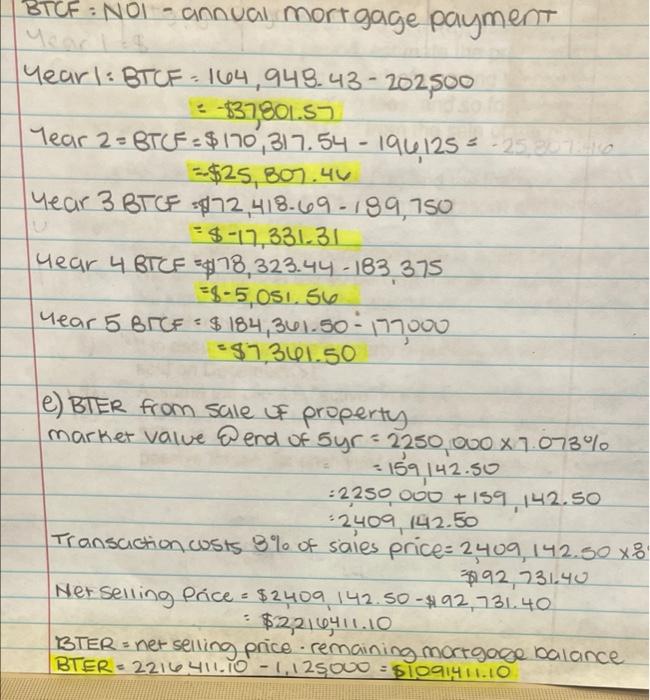 BTCF = NOI - annual mortgage payment
Year 1 = $
Year 1: BTCF = 164,948.43 - 202,500
= -$37,801.57
Year 2 = BTCF = $170,317.54 - 196,125 = -25,807.46
= -$25,807.46
Year 3 BTCF = $172,418.69 - 189,750
= $-17,331.31
Year 4 BTCF = $178,323.44 - 183,375
= $-5,051.56
Year 5 BTCF = $184,361.50 - 177,000
= $7,361.50
e) BTER from sale of property
market value @ end of 5yr = 2250,000 x 7.073%
= 159,142.50
= 2250,000 + 159,142.50
= 2409,142.50
Transaction costs 8% of sales price = 2,409,142.50 x 8
= $192,731.40
Net selling Price = $2,409,142.50 - $192,731.40
= $2,216,411.10
BTER = net selling price - remaining mortgage balance
BTER = 2216,411.10 - 1,125,000 = $1091,411.10